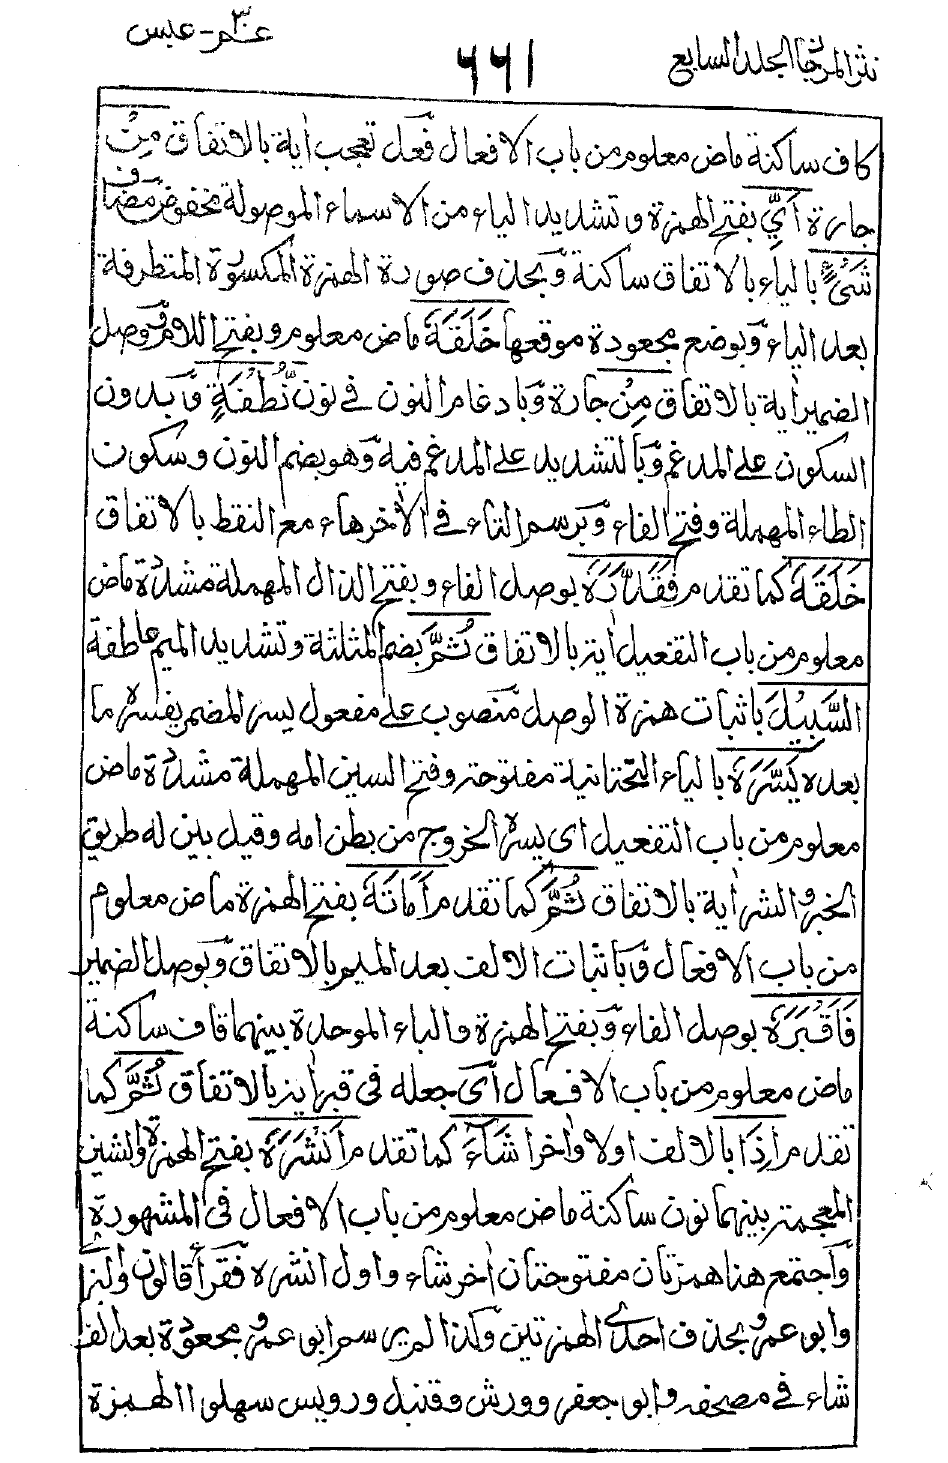 نثر المرجان الجلد السابع
٦٦١
عم ٣٠ - عبس
كاف ساكنة ماض معلوم من باب الافعال فعل تعجب اية بالاتفاق مِنْ
جارة اَيِّ بفتح الهمزة وتشديد الياء من الاسماء الموصولة مخفوض مضاف
شَيْءٍ بالياء بالاتفاق ساكنة وبحذف صورة الهمزة المكسورة المتطرفة
بعد الياء وبوضع مجعودة موقعها خَلَقَهٗ ماض معلوم وبفتح اللام ووصل
الضمير اية بالاتفاق مِنْ جارة وبادغام النون في نون نُّطْفَةٍ وبدون
السكون على المدغم وبالتشديد على المدغم فيه وهو بضم النون وسكون
الطاء المهملة وفتح الفاء وبرسم التاء في الاخر هاء مع النقط بالاتفاق
خَلَقَهٗ كما تقدم فَقَدَّرَهٗ بوصل الفاء وبفتح الدال المهملة مشددة ماض
معلوم من باب التفعيل اية بالاتفاق ثُمَّ بضم المثلثة وتشديد الميم عاطفة
السَّبِيْلَ باثبات همزة الوصل منصوب على مفعول يسر المضمر يفسره ما
بعده يَسَّرَهٗ بالياء التحتانية مفتوحة وفتح السين المهملة مشددة ماض
معلوم من باب التفعيل اى يسره الخروج من بطن امه وقيل بين له طريق
الخير والشر اية بالاتفاق ثُمَّ كما تقدم اَمَاتَهٗ بفتح الهمزة ماض معلوم
من باب الافعال وباثبات الالف بعد الميم بالاتفاق وبوصل الضمير
فَاَقْبَرَهٗ بوصل الفاء وبفتح الهمزة والباء الموحدة بينهما قاف ساكنة
ماض معلوم من باب الافعال اى جعله في قبر اية بالاتفاق ثُمَّ كما
تقدم اِذَا بالالف اولا واخرا شَآءَ كما تقدم اَنْشَرَهٗ بفتح الهمزة والشين
المعجمة بينهما نون ساكنة ماض معلوم من باب الافعال في المشهورة
واجتمع هنا همزتان مفتوحتان اخر شاء واول انشره فقرأ قالون والبزي
وابو عمرو بحذف احدى الهمزتين وكذا لم يرسم ابو عمرو مجعودة بعد الف
شاء في مصحفه وابو جعفر وورش وقنبل ورويس سهلوا الهمزة